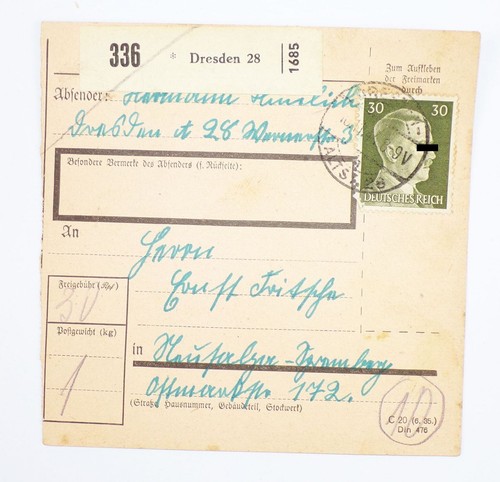 336 * Dresden 28 1685
Zum Aufkleben
der Freimarken
durch
Absender: Hermann
Dresden A 28 Wernerstr. 3
30 30
DEUTSCHES REICH
Besondere Vermerke des Absenders (s. Rückseite):
An
Herrn
Ernst Fritsche
Freigebühr (Rpf)
50
Postgewicht (kg)
1
in Neusalza-Spremberg
Ostmarkstr 172.
(Straße, Hausnummer, Gebäudeteil, Stockwerk)
10
C 20 (6. 35.)
Din 476